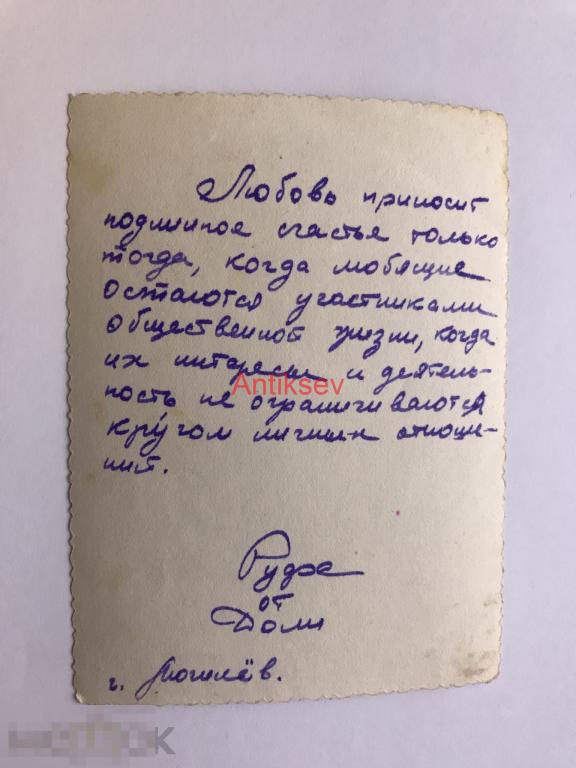 Любовь приносит
подлинное счастье только
тогда, когда любящие
остаются участниками
общественной жизни, когда
их интересы и деятель-
Antiksev
ность не ограничиваются
кругом личных отноше-
ний.
от
Доли
г. Могилёв.